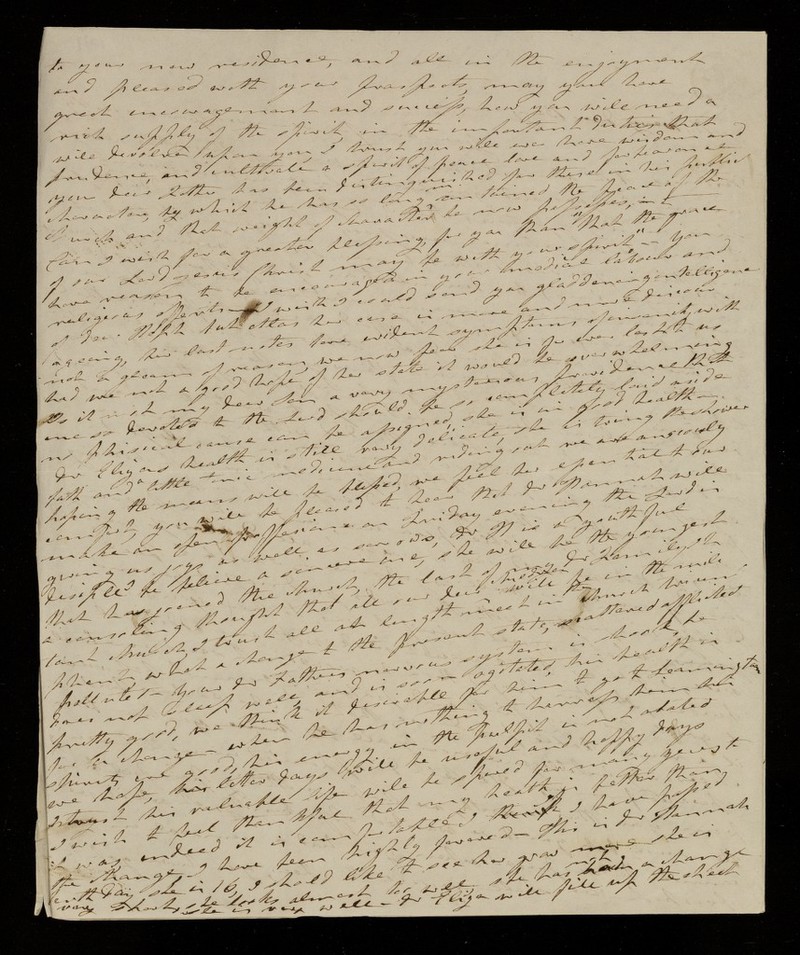 to your new residence, and all in the enjoyment
and pleased with your prospects, may you have
great encouragement and success, how you will need a
rich supply of the spirit, in the important duties that
will devolve upon you I trust you will ever have wisdom and
prudence, and cultivate a spirit of peace love and forbearance
your dear Father has been distinguished for these in his public
character, by which he has so long sustained the peace of the
Church and that weight of character he now possesses, in
Can I wish for a greater blessing, for you than "that the grace
of our Lord Jesus Christ may be with your spirit" — You
have reason to be encouraged in your labours and
religious I wish I could send you gladdening intelligence
of Dear but alas her case is more and more
her last notes gave evident symptoms of insanity, with
not a gleam of reason, we now fear she is for ever lost to us
had we not a good hope of her state it would be overwhelming
It is my dear Son a very mysterious providence that
one so devoted to the Lord should be so completely laid aside
no phisical cause can be assigned, she is in good health —
Dr Elizas health is still very delicate, she is trying the shower
bath and little tonic medicine and riding out we are anxiously
hoping the means will be blessed, we feel her
you will be pleased to hear that Dr Hannah will
make an open proffession on Friday evening the Lord is
giving us joys as well as sorrows, Dr H is a youthful
desiple we believe a sincere one, she will be the youngest
that has joined the Church, the last of my Dr family, it is
a consoling thought that all our dear children will be in the mili
tant church, I trust all at length meet in the Church trium
phant, what a change to the present state, scattered afflicted
pollute — Your Dr Fathers nervous system is shook he
does not sleep well and is soon agitated, his health is
pretty good, we think it desirable for him to go to Leamington
for a change — where he has nothing to harrass him his
spirits are good, his energy in the pulpit is not abated
we hope, his latter days will be useful and happy days
I trust his valuable life will be spared for many years to
I wish to feel thankful that my health is better than
it was indeed it is comfortable I have passed
the change, I have been highly favoured — This is Dr Hannah
th Day, she is 16, I should like to see her grow more she is
very short, she looks almost she has not a change
she is very well — Dr Eliza will fill up the sheet